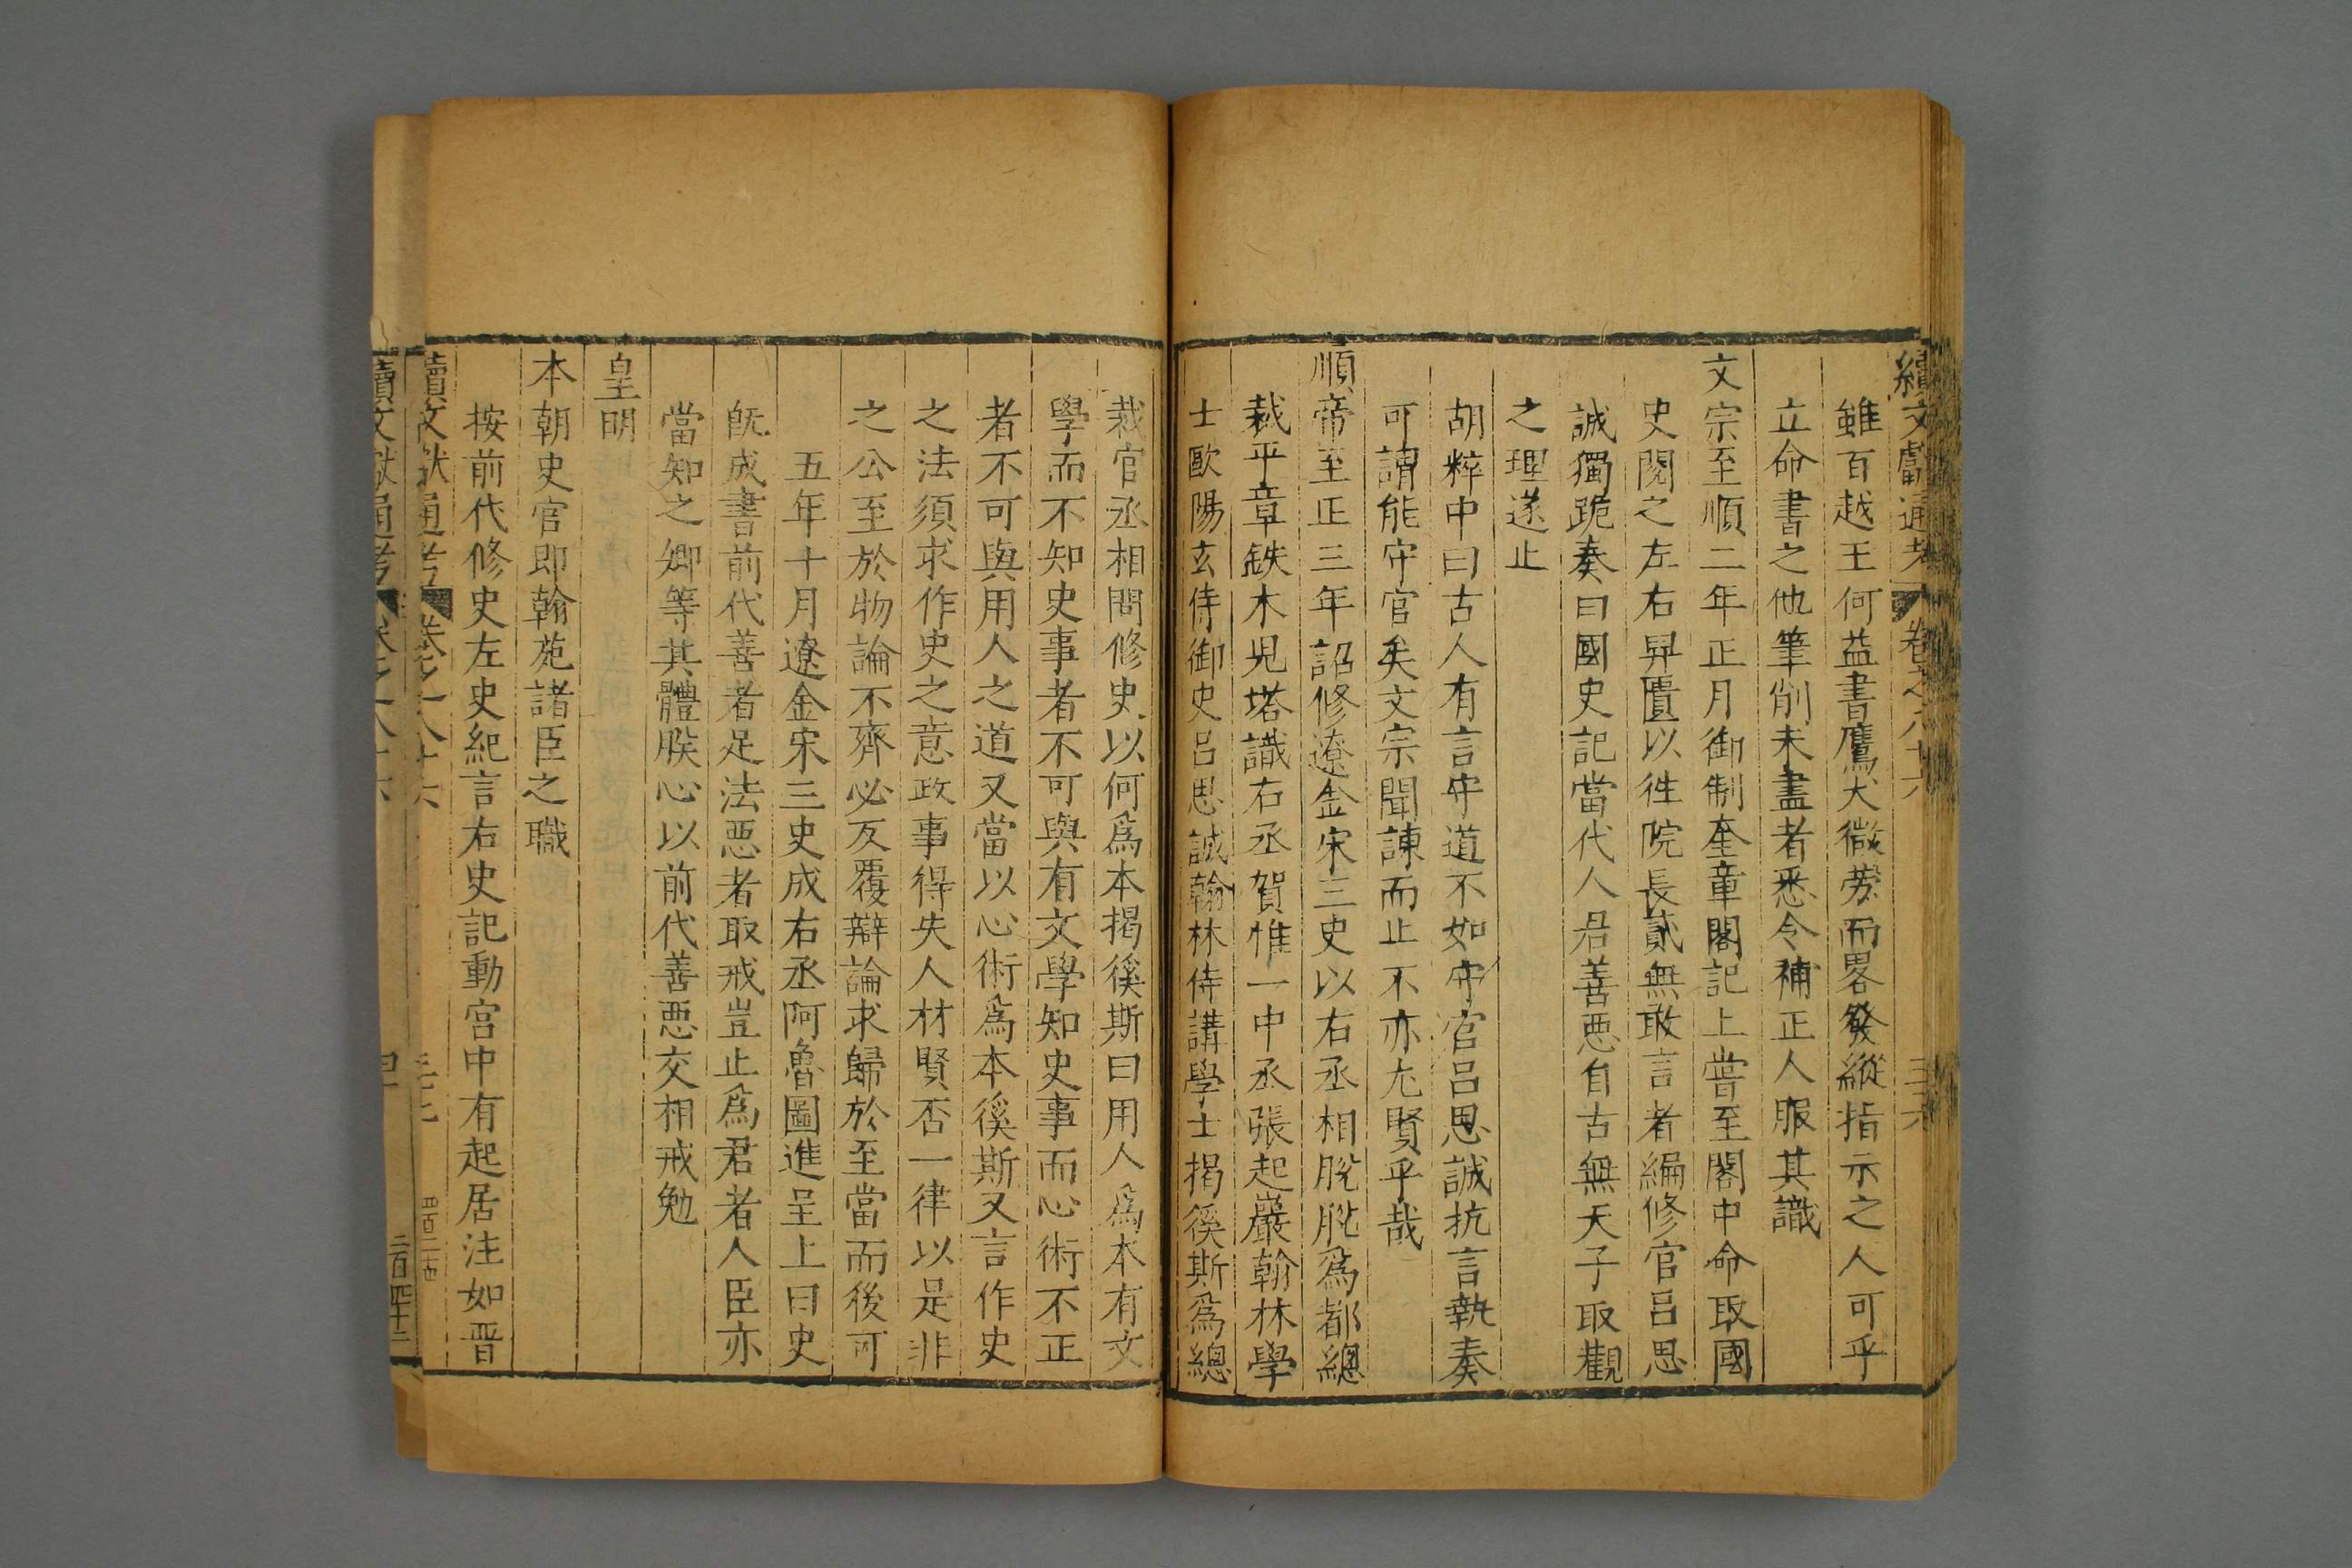 續文獻通考 卷之八十六 三六
雖百越王何益書鷹犬微勞而畧發縱指示之人可乎
立命書之他筆削未盡者悉令補正人服其識
文宗至順二年正月御制奎章閣記上嘗至閣中命取國
史閱之左右舁匱以徃院長貳無敢言者編修官呂思
誠獨跪奏曰國史記當代人君善惡自古無天子取觀
之理遂止
胡粹中曰古人有言守道不如守官呂思誠抗言執奏
可謂能守官矣文宗聞諫而止不亦尢賢乎哉
順帝至正三年詔修遼金宋三史以右丞相脫脫爲都總
裁平章鉄木児塔識右丞賀惟一中丞張起巖翰林學
士歐陽玄侍御史呂思誠翰林侍講學士揭傒斯爲總
裁官丞相問修史以何爲本揭傒斯曰用人爲本有文
學而不知史事者不可與有文學知史事而心術不正
者不可與用人之道又當以心術爲本傒斯又言作史
之法須求作史之意政事得失人材賢否一律以是非
之公至於物論不齊必反覆辯論求歸於至當而後可
五年十月遼金宋三史成右丞阿魯圖進呈上曰史
旣成書前代善者足法惡者取戒豈止爲君者人臣亦
當知之卿等其體朕心以前代善惡交相戒勉
皇明
本朝史官即翰苑諸臣之職
按前代修史左史紀言右史記動宮中有起居注如晋
續文獻通考 卷之八十六 三七
續文獻通考 卷之八十六
二百四十二